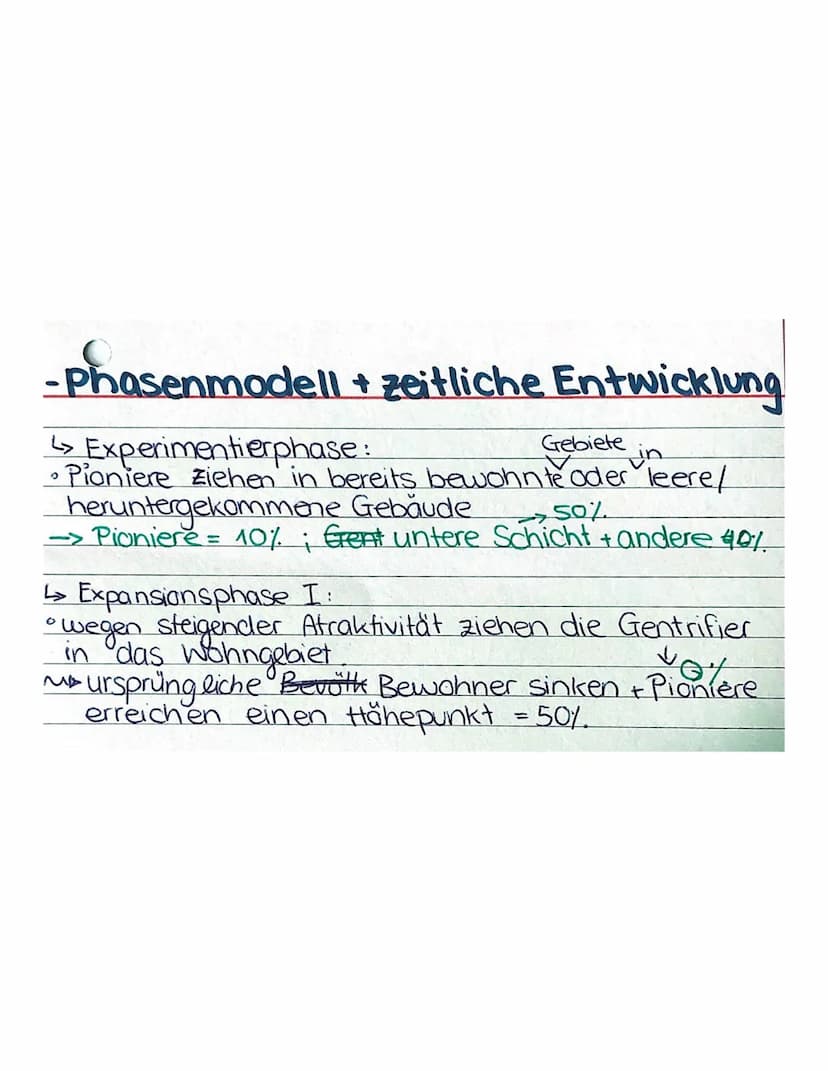 -Phasenmodell + zeitliche Entwicklung
↳ Experimentierphase: Gebiete in
• Pioniere ziehen in bereits bewohnte oder leere/
heruntergekommene Gebäude → 50%
--> Pioniere = 10% ; Gent untere Schicht + andere 40%.
↳ Expansionsphase I:
• wegen steigender Atraktivität ziehen die Gentrifier
in das Wohngebiet ↓ 0%
ursprüngliche Bevölk Bewohner sinken + Pioniere
erreichen einen Höhepunkt = 50%.